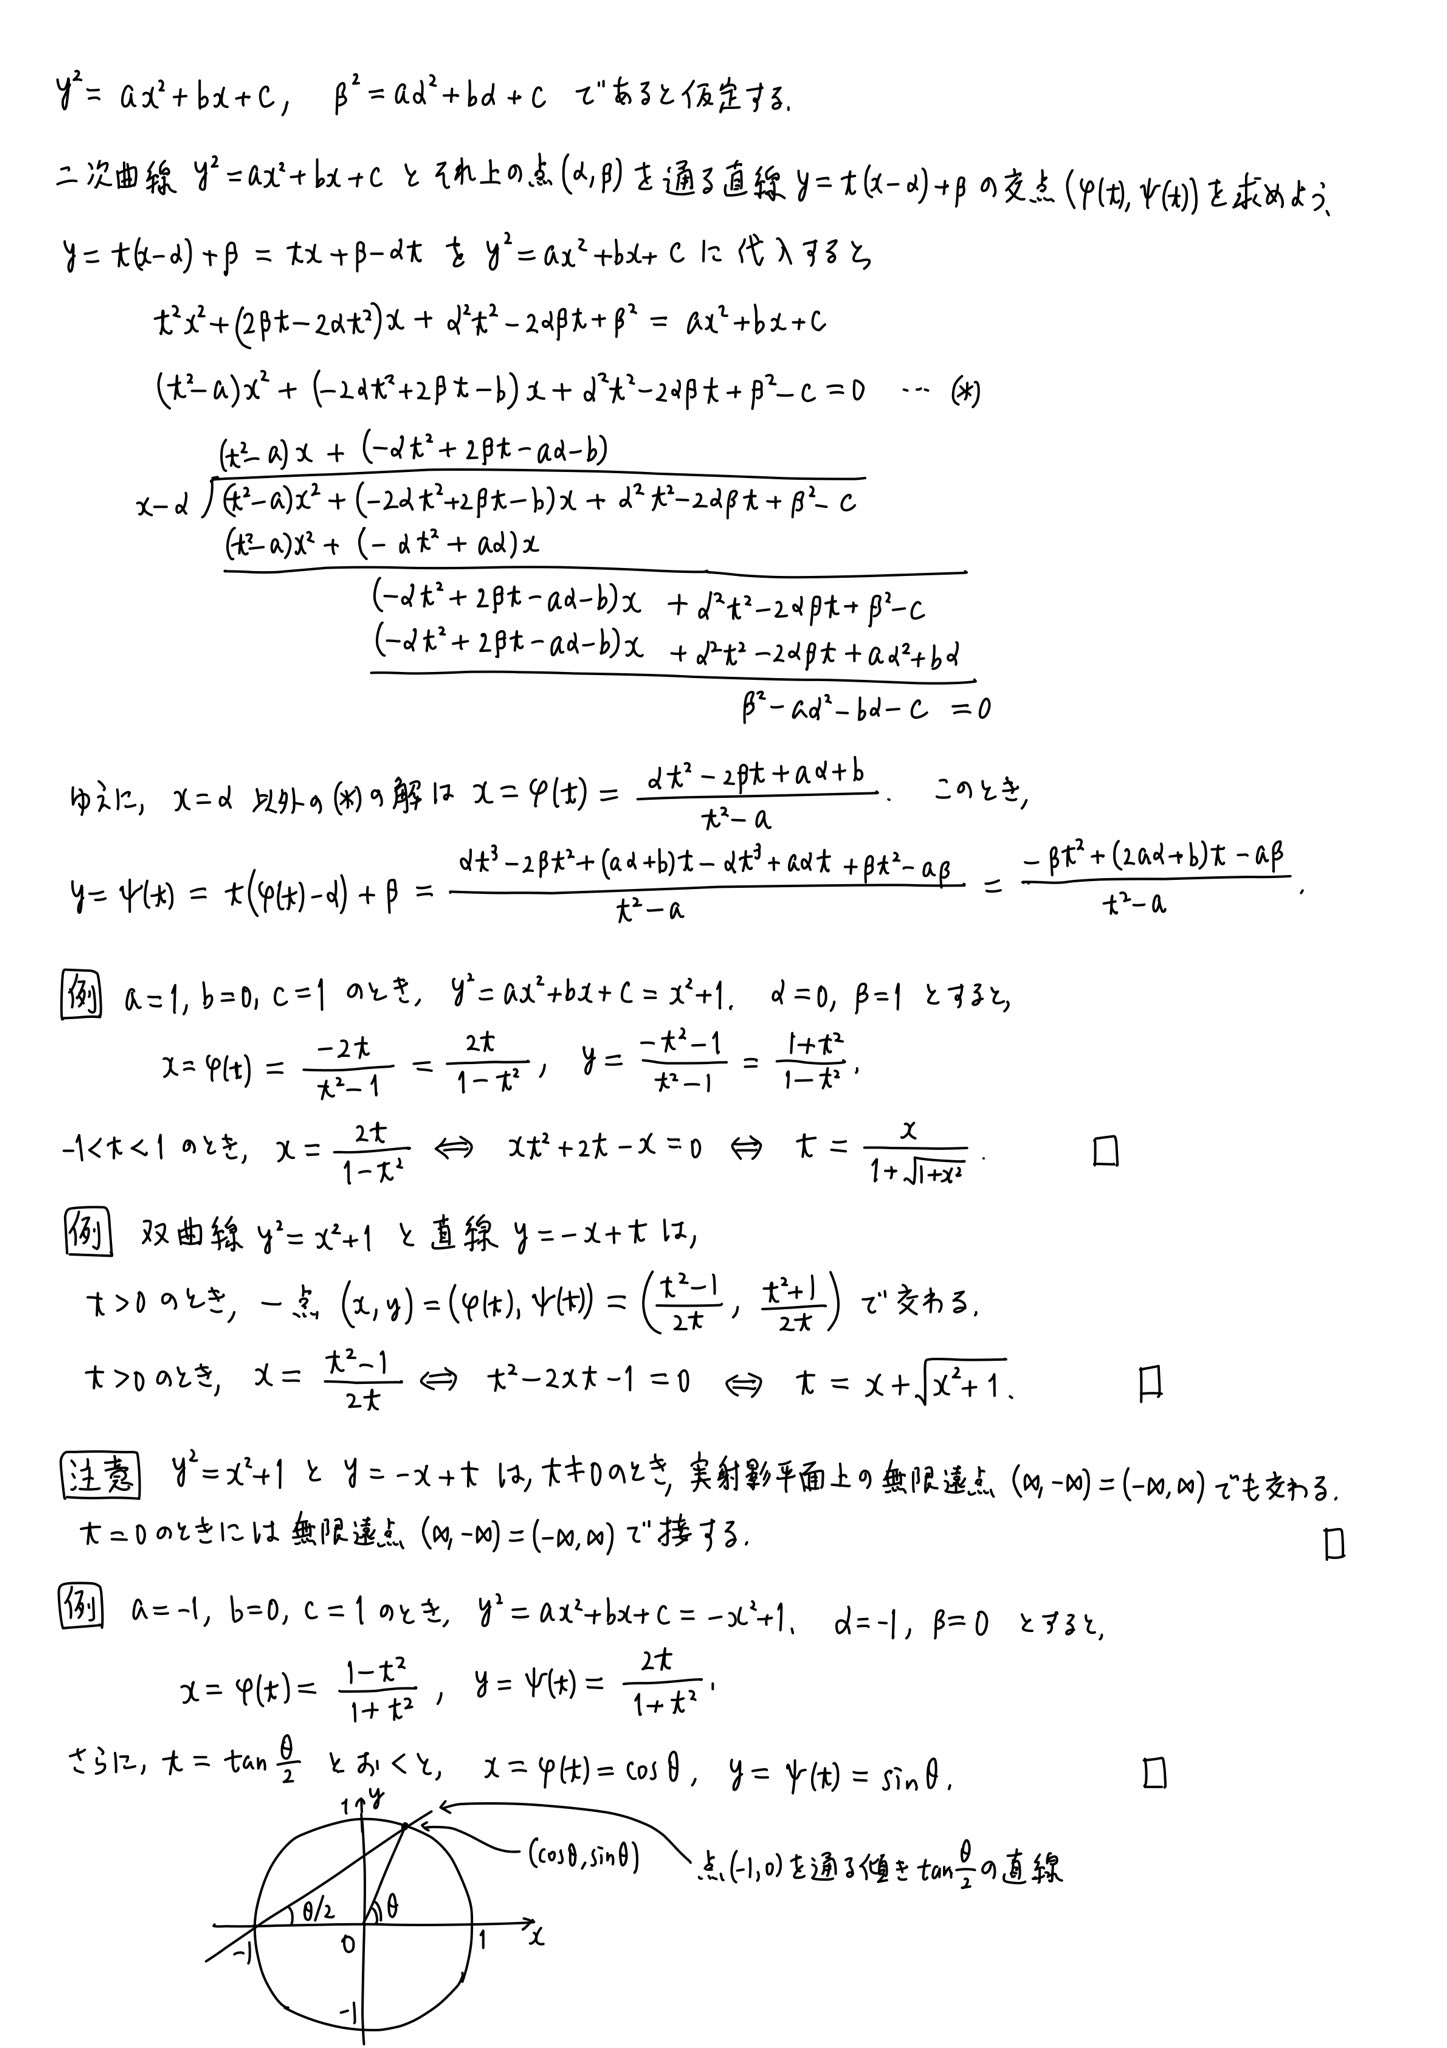 y² = ax²+bx+c, β² = aα²+bα+c であると仮定する.
二次曲線 y²=ax²+bx+c とそれ上の点(α,β)を通る直線 y=t(x-α)+β の交点 (φ(t), ψ(t)) を求めよう.
y = t(x-α)+β = tx+β-αt を y²=ax²+bx+c に代入すると,
t²x²+(2βt-2αt²)x + α²t²-2αβt+β² = ax²+bx+c
(t²-a)x² + (-2αt²+2βt-b)x + α²t²-2αβt+β²-c = 0 … (*)
(t²-a)x + (-αt²+2βt-aα-b)
x-α √(t²-a)x² + (-2αt²+2βt-b)x + α²t²-2αβt+β²-c
(t²-a)x² + (-αt²+aα)x
(-αt²+2βt-aα-b)x + α²t²-2αβt+β²-c
(-αt²+2βt-aα-b)x + α²t²-2αβt+aα²+bα
β²-aα²-bα-c = 0
ゆえに, x=α 以外の(*)の解は x = φ(t) = (αt²-2βt+aα+b)/(t²-a). このとき,
y = ψ(t) = t(φ(t)-α)+β = (αt³-2βt²+(aα+b)t-αt³+aαt+βt²-aβ)/(t²-a) = (-βt²+(2aα+b)t-aβ)/(t²-a).
例 a=1, b=0, c=1 のとき, y²=ax²+bx+c=x²+1. α=0, β=1 とすると,
x = φ(t) = (-2t)/(t²-1) = (2t)/(1-t²), y = (-t²-1)/(t²-1) = (1+t²)/(1-t²).
-1<t<1 のとき, x = (2t)/(1-t²) ⇔ xt²+2t-x=0 ⇔ t = x/(1+√(1+x²)). □
例 双曲線 y²=x²+1 と直線 y=-x+t は,
t>0 のとき, 一点 (x,y)=(φ(t), ψ(t)) = ((t²-1)/(2t), (t²+1)/(2t)) で交わる.
t>0 のとき, x = (t²-1)/(2t) ⇔ t²-2xt-1=0 ⇔ t = x+√(x²+1). □
注意 y²=x²+1 と y=-x+t は, t≠0のとき, 実射影平面上の無限遠点 (∞,-∞)=(-∞,∞) でも交わる.
t=0 のときには無限遠点 (∞,-∞)=(-∞,∞) で接する. □
例 a=-1, b=0, c=1 のとき, y²=ax²+bx+c=-x²+1. α=-1, β=0 とすると,
x = φ(t) = (1-t²)/(1+t²), y = ψ(t) = (2t)/(1+t²).
さらに, t = tan θ/2 とおくと, x=φ(t)=cosθ, y=ψ(t)=sinθ. □
1 y
(cosθ, sinθ) 点(-1,0)を通る傾き tan θ/2 の直線
θ/2 θ
-1 0 1 x
-1